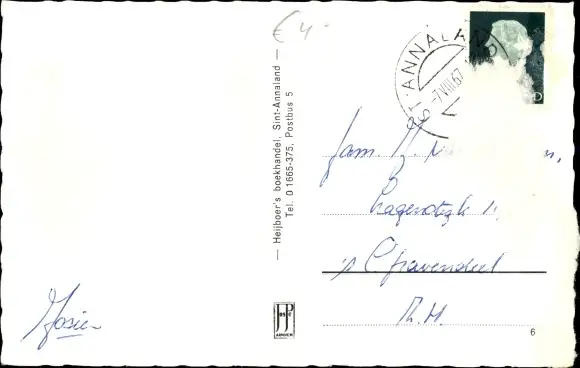 € 4-
ST-ANNALAND
-7.VIII.67
— Heijboer's boekhandel, Sint-Annaland —
Tel. 0 1665-375, Postbus 5
Fam.
Lagendijk
's Gravendeel
Z.H.
Josien
JP
6